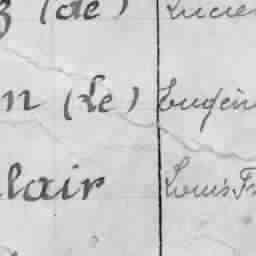 (de) Lucie
n (Le) Eugèn
lair Louis Fr